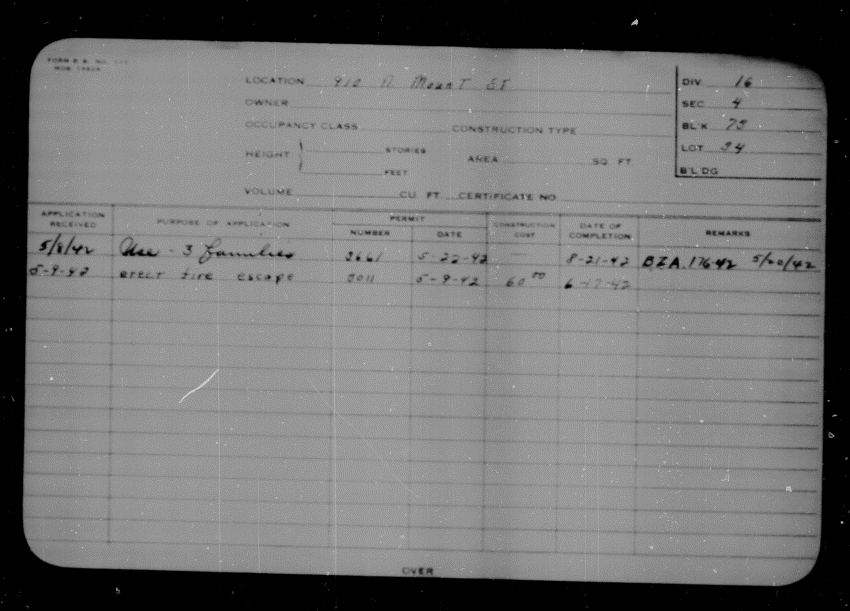 FORM B.B. NO.
LOCATION 910 N Mount ST
OWNER
OCCUPANCY CLASS CONSTRUCTION TYPE
HEIGHT STORIES AREA SQ. FT.
FEET
VOLUME CU. FT. CERTIFICATE NO
DIV. 16
SEC 4
BL'K 75
LOT 34
B'L'DG
APPLICATION RECEIVED PURPOSE OF APPLICATION PERMIT NUMBER DATE CONSTRUCTION COST DATE OF COMPLETION REMARKS
5/8/42 Use - 3 families 3661 5-22-42 — 8-21-42 BZA.176-42 5/20/42
5-9-42 erect fire escape 3011 5-9-42 60 00 6-17-42
OVER